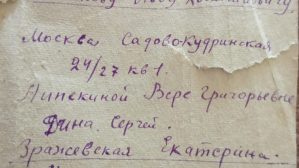 Москва Садово-Кудринская
24/27 кв 1.
Липекиной Вере Григорьевне
Дина. Сергей.
Зражевская Екатерина.